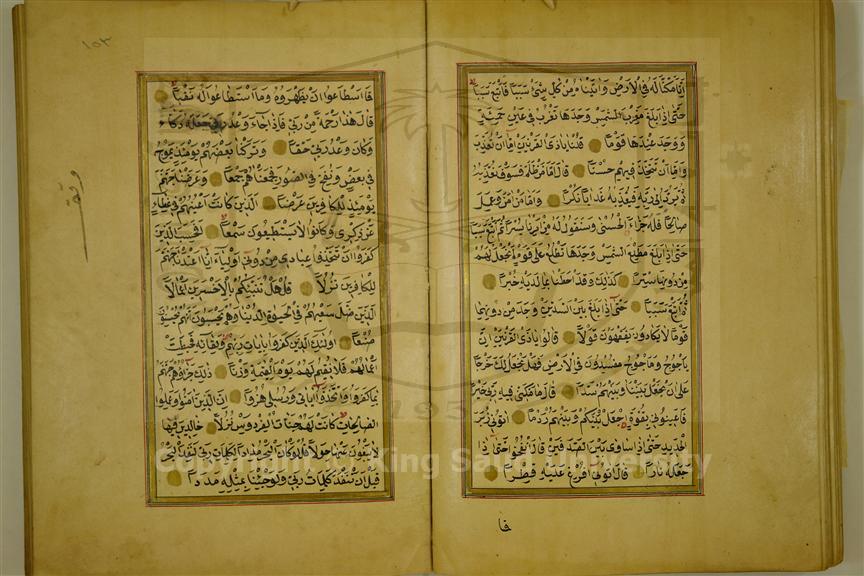 انا مكنا له في الارض واتيناه من كل شئ سببا فاتبع سببا
حتى اذا بلغ مغرب الشمس وجدها تغرب في عين حمئة
ووجد عندها قوما قلنا ياذا القرنين اما ان تعذب
واما ان تتخذ فيهم حسنا قال اما من ظلم فسوف نعذبه
ثم يرد الى ربه فيعذبه عذابا نكرا واما من امن وعمل
صالحا فله جزاء الحسنى وسنقول له من امرنا يسرا ثم اتبع سببا
حتى اذا بلغ مطلع الشمس وجدها تطلع على قوم لم نجعل لهم
من دونها سترا كذلك وقد احطنا بما لديه خبرا
ثم اتبع سببا حتى اذا بلغ بين السدين وجد من دونهما
قوما لا يكادون يفقهون قولا قالوا ياذا القرنين ان
ياجوج وماجوج مفسدون في الارض فهل نجعل لك خرجا
على ان تجعل بيننا وبينهم سدا قال ما مكني فيه ربي خير
فاعينوني بقوة اجعل بينكم وبينهم ردما اتوني زبر
الحديد حتى اذا ساوى بين الصدفين قال انفخوا حتى اذا
جعله نارا قال اتوني افرغ عليه قطرا
فا
١٥٣
فما اسطاعوا ان يظهروه وما استطاعوا له نقبا
قال هذا رحمة من ربي فاذا جاء وعد ربي جعله دكاء
وكان وعد ربي حقا وتركنا بعضهم يومئذ يموج
في بعض ونفخ في الصور فجمعناهم جمعا وعرضنا جهنم
يومئذ للكافرين عرضا الذين كانت اعينهم في غطاء
عن ذكري وكانوا لا يستطيعون سمعا افحسب الذين
كفروا ان يتخذوا عبادي من دوني اولياء انا اعتدنا جهنم
للكافرين نزلا قل هل ننبئكم بالاخسرين اعمالا
الذين ضل سعيهم في الحيوة الدنيا وهم يحسبون انهم يحسنون
صنعا اولئك الذين كفروا بايات ربهم ولقائه فحبطت
اعمالهم فلا نقيم لهم يوم القيمة وزنا ذلك جزاؤهم جهنم
بما كفروا واتخذوا اياتي ورسلي هزوا ان الذين امنوا وعملوا
الصالحات كانت لهم جنات الفردوس نزلا خالدين فيها
لا يبغون عنها حولا قل لو كان البحر مدادا لكلمات ربي لنفد البحر
قبل ان تنفد كلمات ربي ولو جئنا بمثله مددا
Copyright © King Saud University
195